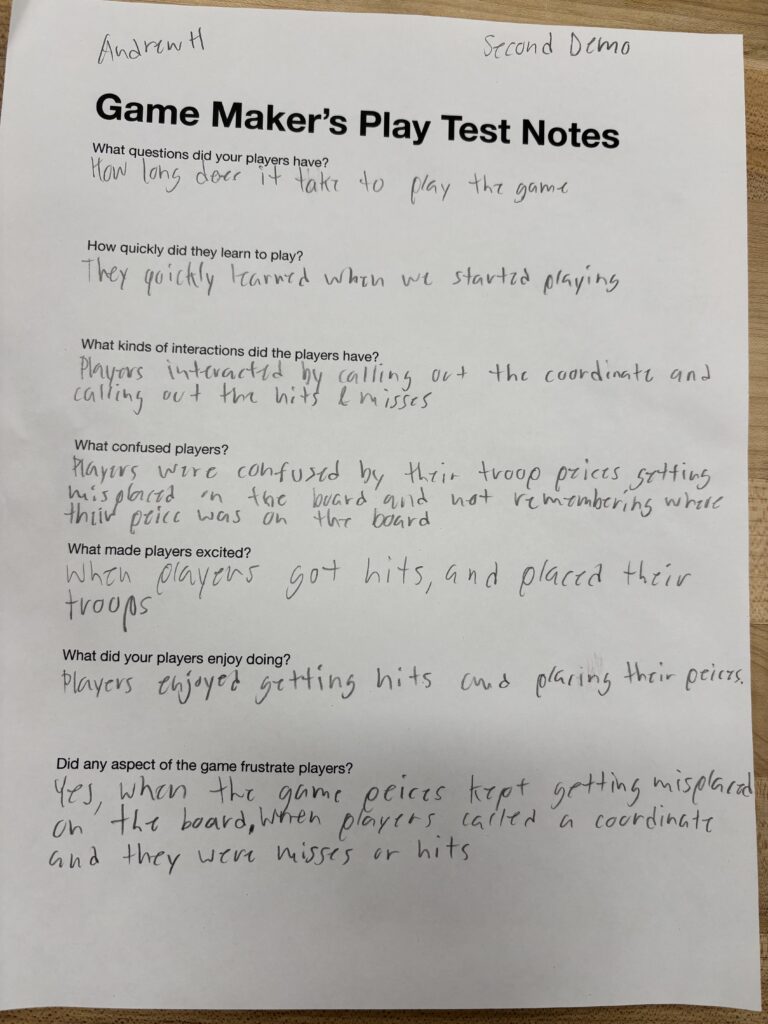 Andrew H
Second Demo
Game Maker's Play Test Notes
What questions did your players have?
How long does it take to play the game
How quickly did they learn to play?
They quickly learned when we started playing
What kinds of interactions did the players have?
Players interacted by calling out the coordinate and
calling out the hits & misses
What confused players?
Players were confused by their troop peices getting
misplaced on the board and not remembering where
their peice was on the board
What made players excited?
When players got hits, and placed their
troops
What did your players enjoy doing?
Players enjoyed getting hits and placing their peices.
Did any aspect of the game frustrate players?
Yes, when the game peices kept getting misplaced
on the board, when players called a coordinate
and they were misses or hits